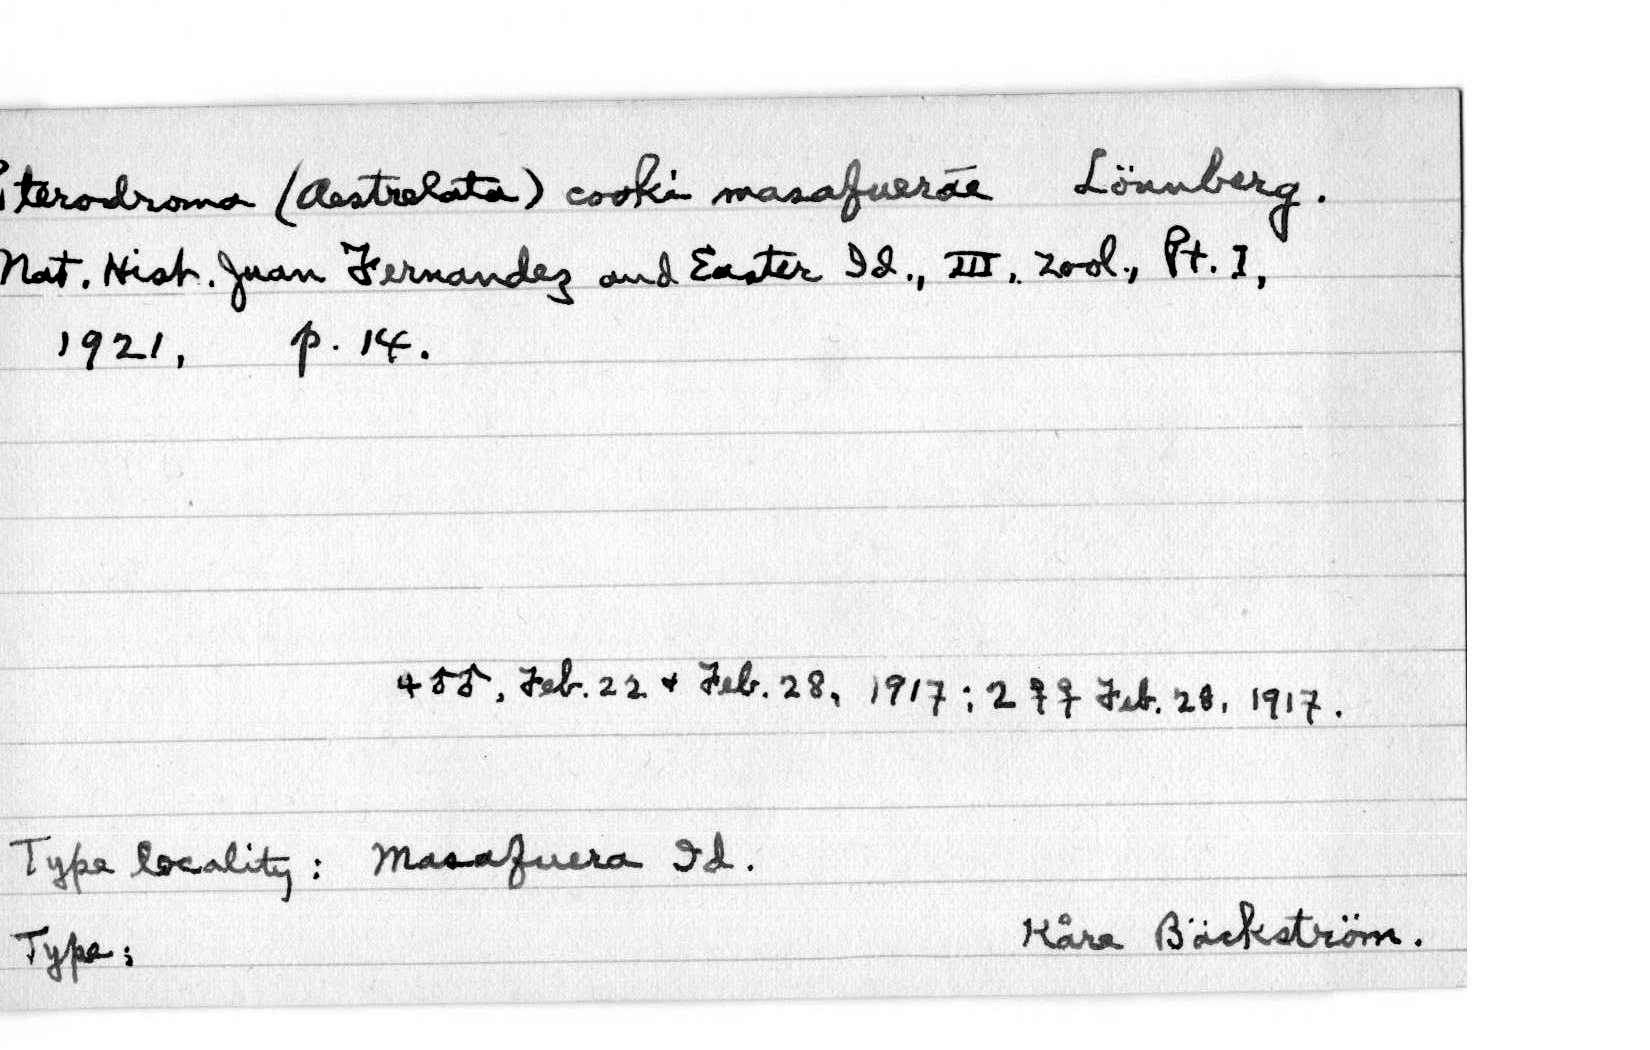 Pterodroma (Aestrelata) cooki masafuerae Lönnberg.
Nat. Hist. Juan Fernandez and Easter Id., III, Zool., Pt. I,
1921, p. 14.
4 ♂♂, Feb. 22 & Feb. 28, 1917; 2 ♀♀ Feb. 28, 1917.
Type locality: Masafuera Id.
Type: Kåre Bäckström.